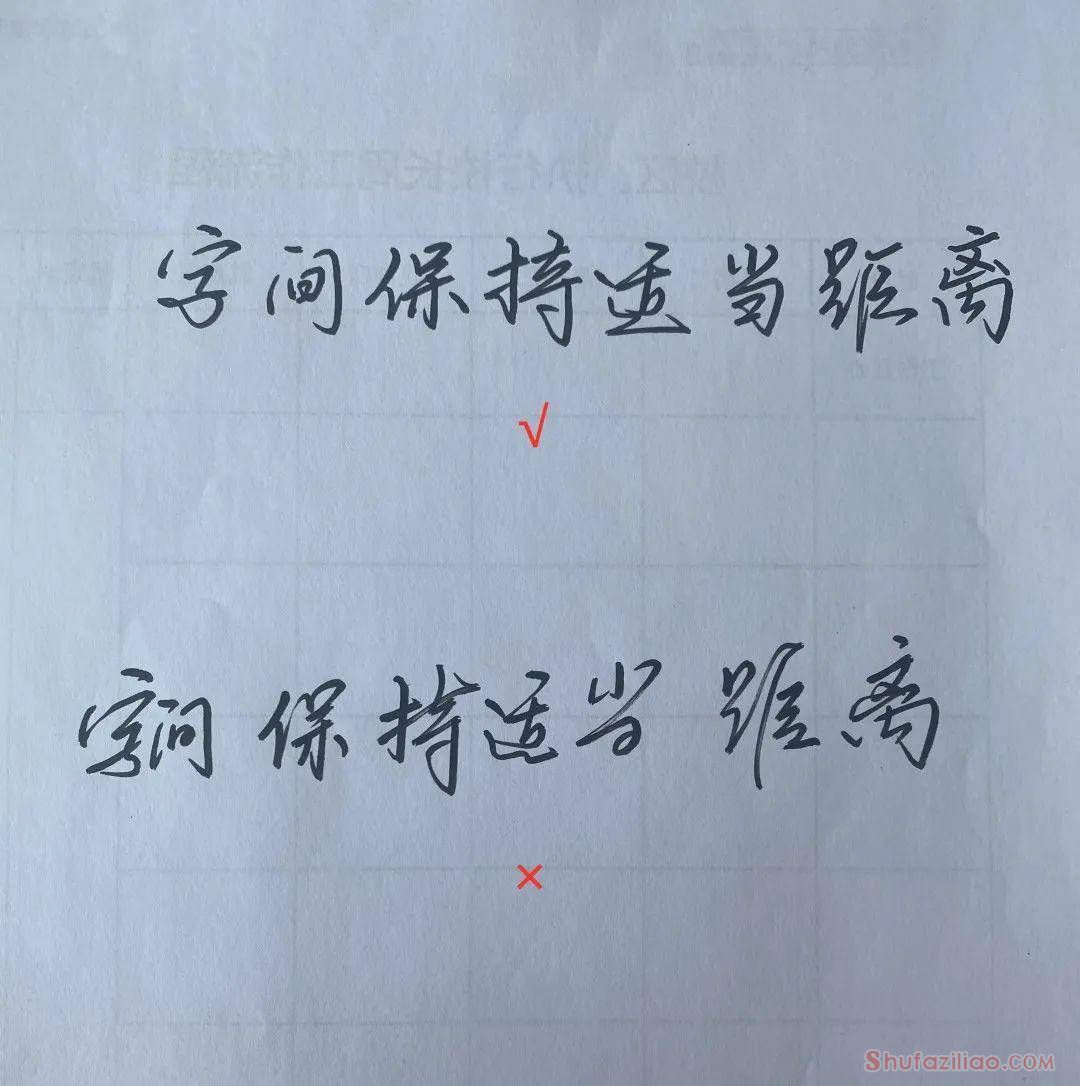 字间保持适当距离
√
字间保持适当距离
×
Shufaziliao.com